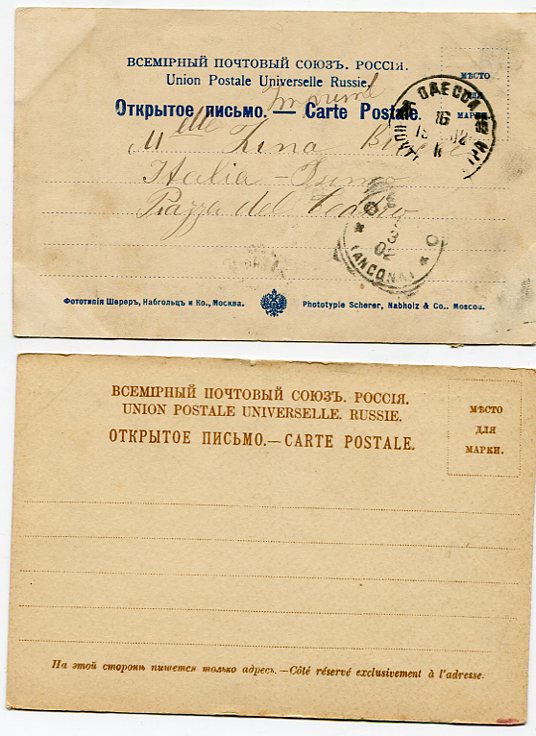 ВСЕМІРНЫЙ ПОЧТОВЫЙ СОЮЗЪ. РОССІЯ.
Union Postale Universelle Russie.
Открытое письмо. — Carte Postale.
МѢСТО
ДЛЯ
МАРКИ.
ОДЕССА
16
Mlle Zina
Italia - Osimo
Piazza del Teatro
02
(ANCONA)
Фототипія Шереръ, Набгольцъ и Ко., Москва.
Phototypie Scherer, Nabholz & Co., Moscou.
ВСЕМІРНЫЙ ПОЧТОВЫЙ СОЮЗЪ. РОССІЯ.
UNION POSTALE UNIVERSELLE. RUSSIE.
ОТКРЫТОЕ ПИСЬМО.—CARTE POSTALE.
МѢСТО
ДЛЯ
МАРКИ.
На этой сторонѣ пишется только адресъ.—Côté réservé exclusivement à l'adresse.